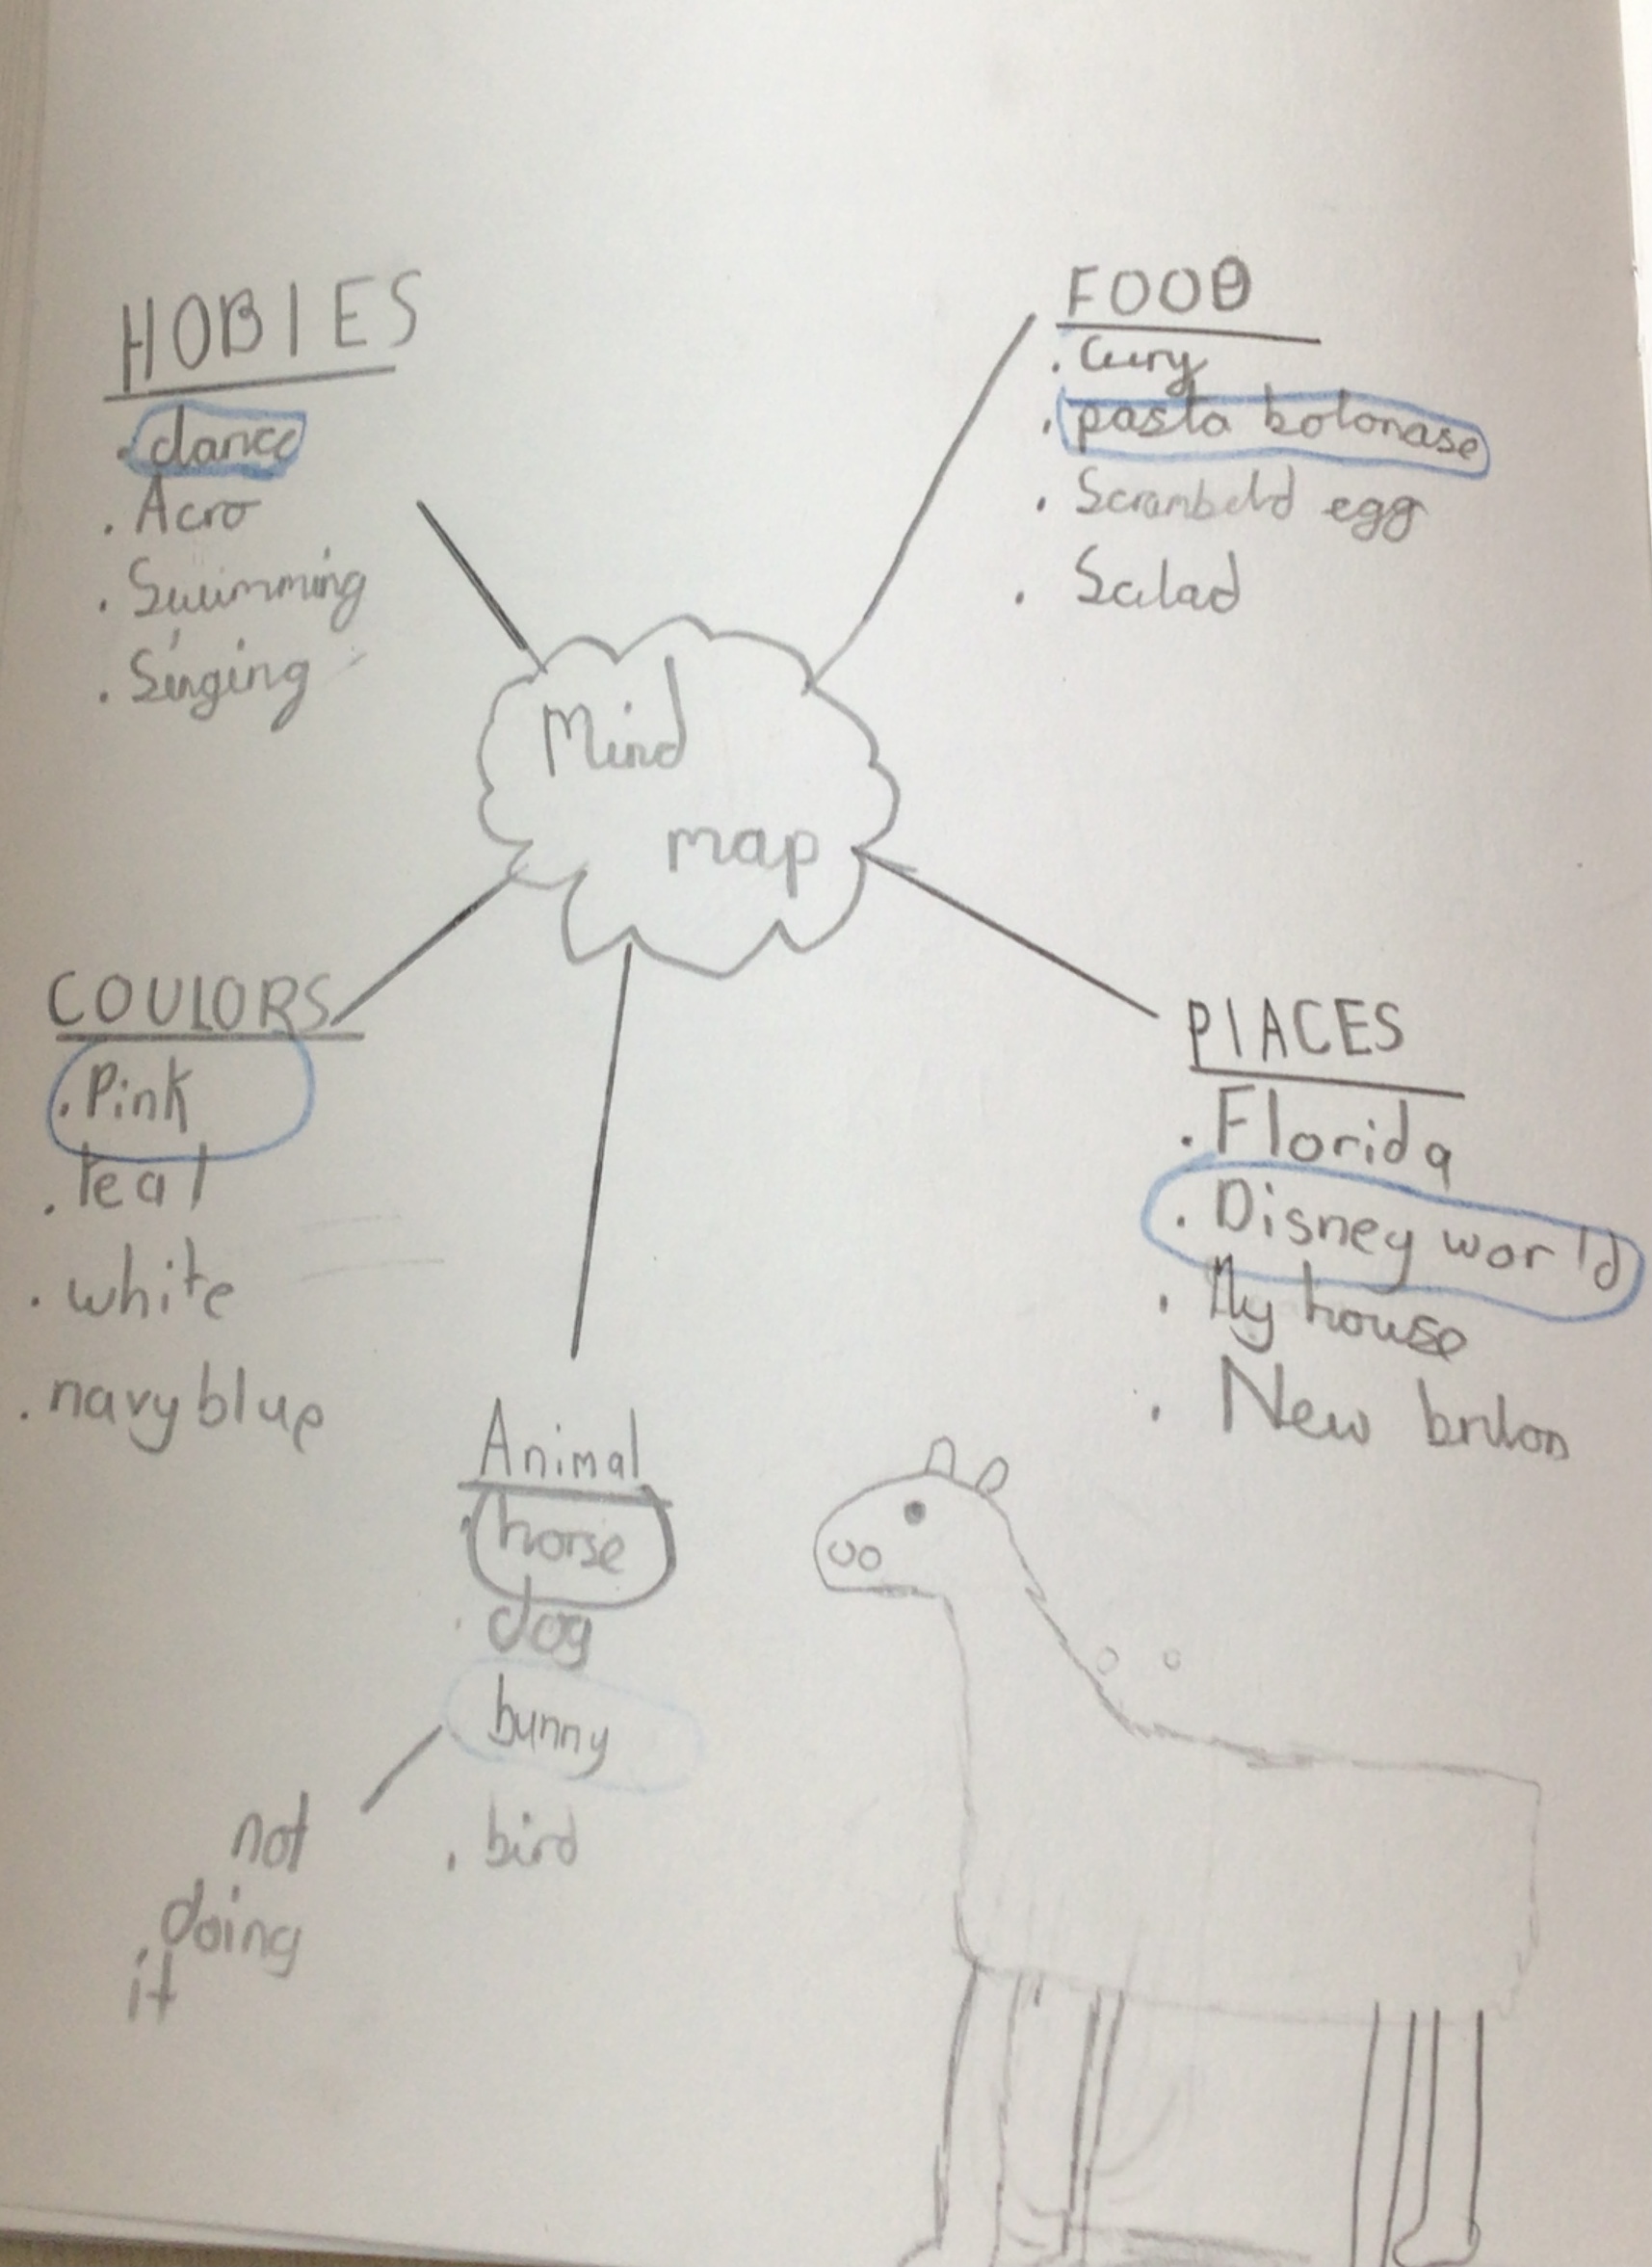 HOBIES
. dance
. Acro
. Swimming
. Singing
FOOD
. Cury
. pasta bolonase
. Scrambeld egg
. Salad
Mind
map
COULORS
. Pink
. teal
. white
. navy blue
PlACES
. Florida
. Disney world
. My house
. New
Animal
. horse
. dog
bunny
. bird
not
doing
it